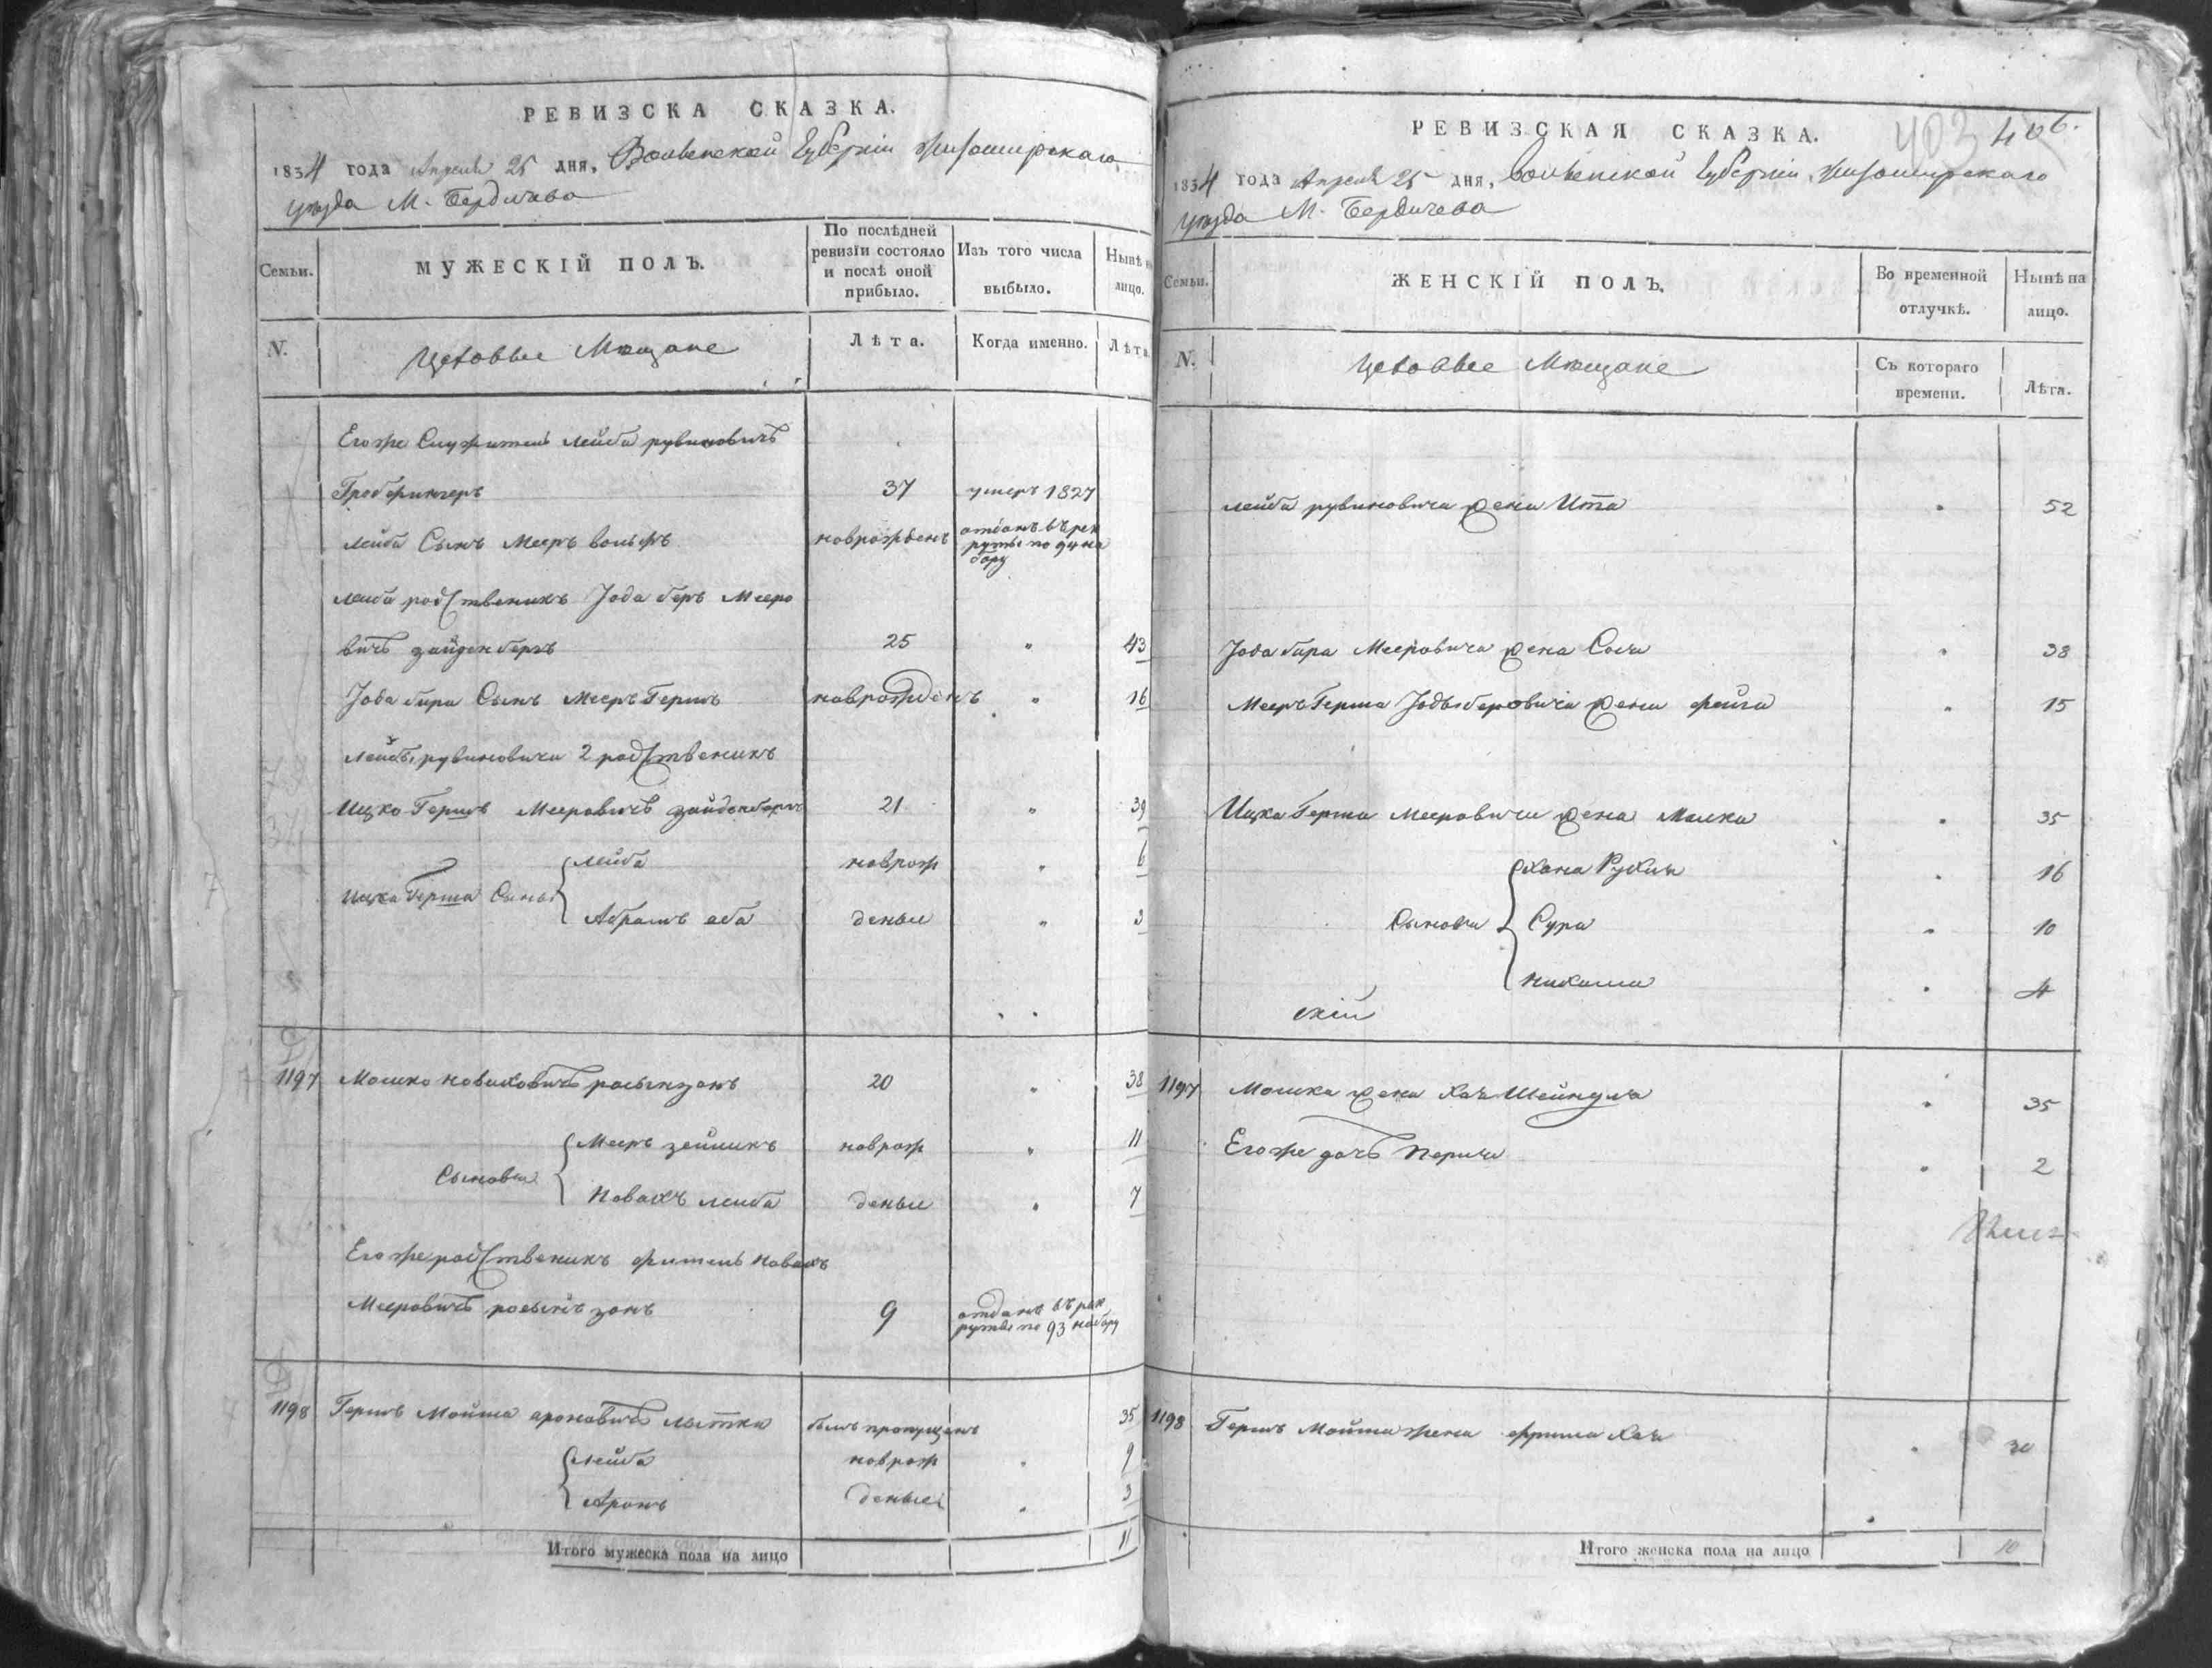 РЕВИЗСКА СКАЗКА.
1834 года Апреля 25 дня, Волынской Губерніи Житомирскаго
уѣзда М. Бердичева
Семьи.
МУЖЕСКІЙ ПОЛЪ.
По послѣдней ревизіи состояло и послѣ оной прибыло.
Изъ того числа выбыло.
Нынѣ на лицо.
N.
Цеховые Мещане
Лѣта.
Когда именно.
Лѣта.
Егоже Служитель Лейба рувиновичъ
Гробфингеръ 37 умеръ 1827
Лейбы Сынъ Мееръ вольфъ новрожденъ отданъ въ рек
руты по 94 на
бору
Лейбы родственикъ Іода беръ Мееро
вичъ зайденберъ 25 " 43
Іода бера Сынъ Мееръ Гершъ новрожденъ " 16
Лейбы рувиновича 2 родственикъ
Ицко Гершъ Мееровичъ зайденберъ 21 " 39
Ицка Герша Сыны
Лейба новрож " 6
Абрамъ аба деные " 3
1197 Мошко новаховичъ 20 " 38
Сыновья
Мееръ зейликъ новрож " 11
Новахъ лейба деные " 7
Егоже родственикъ фитель Новахъ
Мееровичъ 9 отданъ въ рек
руты по 93 набору
1198 Гершъ Мойша ароновичъ былъ пропущенъ 35
Лейба новрож " 9
Аронъ деные " 3
Итого мужеска пола на лицо 11
РЕВИЗСКАЯ СКАЗКА.
403 406.
1834 года Апреля 25 дня, Волынской Губерніи, Житомирскаго
уѣзда М. Бердичева
Семьи.
ЖЕНСКІЙ ПОЛЪ.
Во временной отлучкѣ.
Нынѣ на лицо.
N.
Цеховые Мещане
Съ котораго времени.
Лѣта.
Лейба рувиновича жена Ита " 52
Іода бера Мееровича жена Сося " 38
Мееръ Герша Іодь беровича жена фейга " 15
Ицка Герша Мееровича жена Малка " 35
Хана Рухля " 16
Сыновья Сура " 10
Нихама " 4
скій
1197 Мошка жена Хая Шейндля " 35
Егоже дочь Перля " 2
1198 Гершъ Мойша жена фрима Хая " 30
Итого женска пола на лицо 10